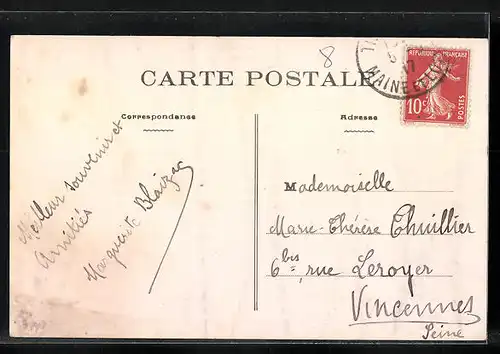 8
CARTE POSTALE
Correspondance
Adresse
REPUBLIQUE FRANÇAISE
10c
POSTES
MAINE
Meilleur souvenir et
Amitiés
Marguerite
Mademoiselle
Marie-Thérèse Thuillier
6bis, rue Leroyer
Vincennes
Seine